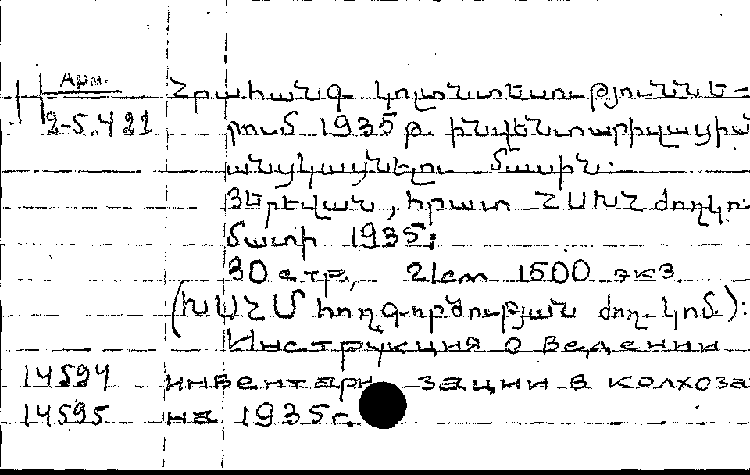 Арм.
2-5.421
Հրահանգ կոլտնտեսություննե-
րում 1935 թ. ինվենտարիզացիա
անցկացնելու մասին։
Յերեվան, հրատ ՀՍԽՀ ժողկո-
մատի 1935։
30 стр, 21см 1500 экз.
(ԽՍՀՄ հողգործության ժող. կոմ.)։
Инструкция о ведении
14594 инвентари зации в колхоза
14595 на 1935 г.